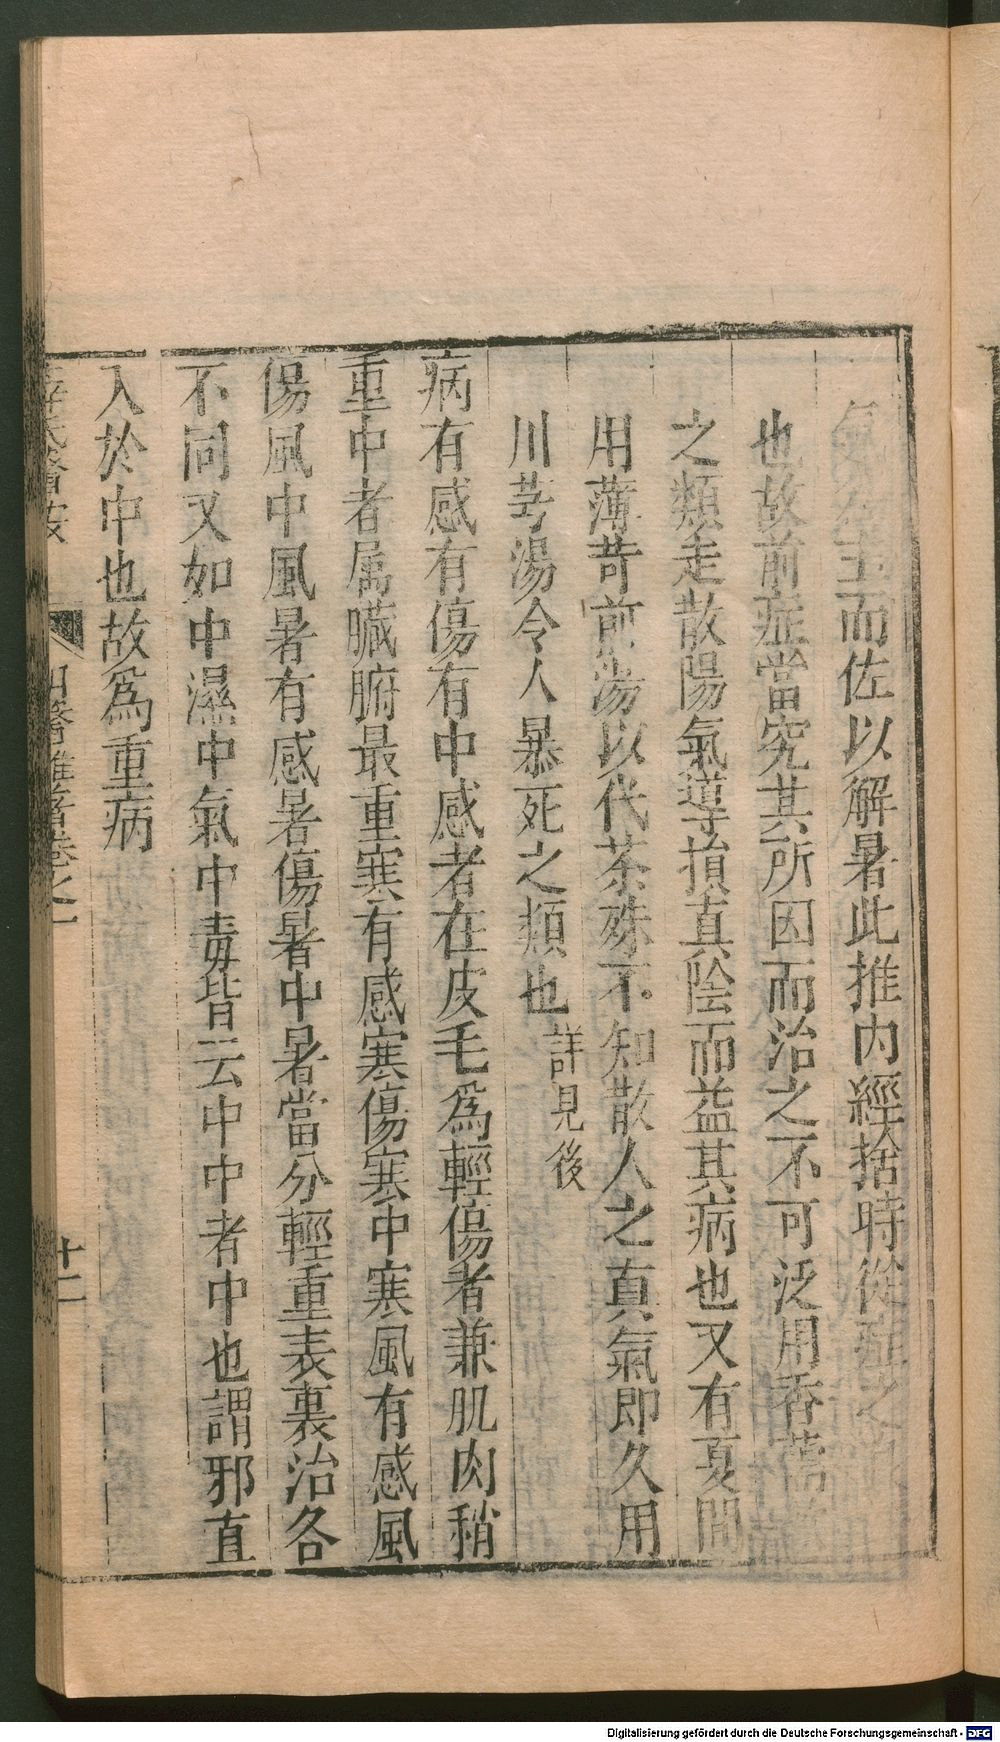 氣為主而佐以解暑此推内經捨時從症之
也故前症當究其所因而治之不可泛用香薷
之類走散陽氣導損真陰而益其病也又有夏間
用薄苛煎湯以代茶殊不知散人之真氣即久用
川芎湯令人暴死之類也詳見後
病有感有傷有中感者在皮毛爲輕傷者兼肌肉稍
重中者属臟腑最重寒有感寒傷寒中寒風有感風
傷風中風暑有感暑傷暑中暑當分輕重表裏治各
不同又如中濕中氣中毒皆云中中者中也謂邪直
入於中也故爲重病
薛氏醫按 明醫雜著卷之一 十二
Digitalisierung gefördert durch die Deutsche Forschungsgemeinschaft - DFG